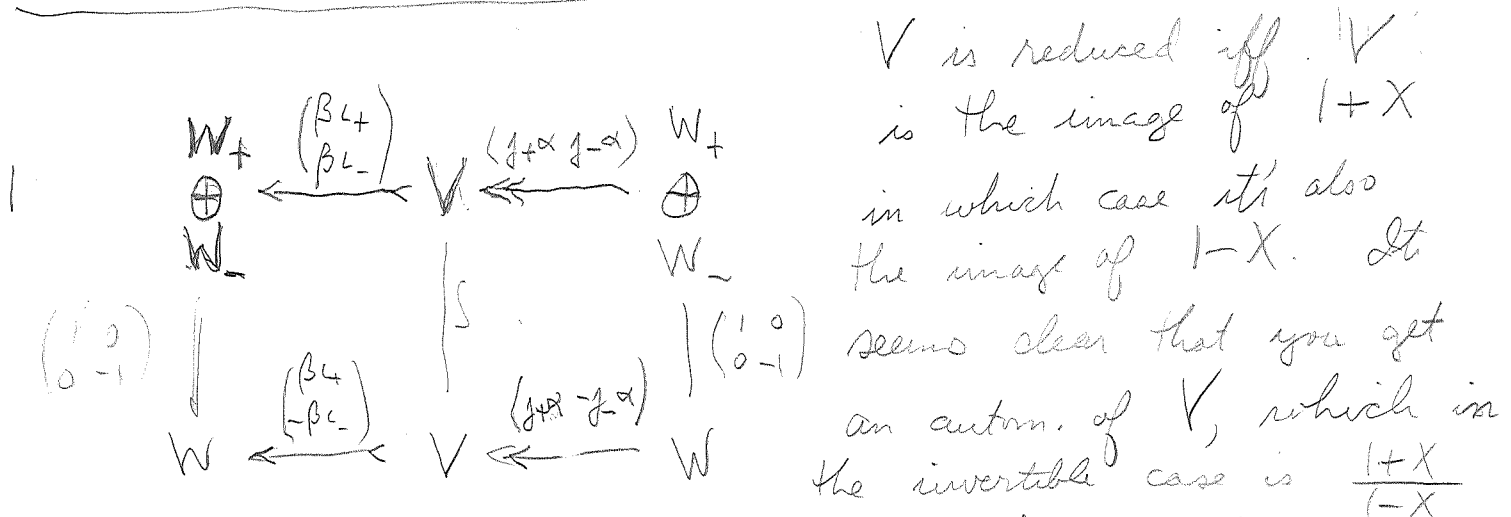 1
W₊ ⊕ W₋ ←⟨ (βι₊ / βι₋) V ↞ (j₊α j₋α) W₊ ⊕ W₋
(1 0 / 0 -1) S (1 0 / 0 -1)
W ←⟨ (βι₊ / -βι₋) V ↞ (j₊α -j₋α) W
V is reduced iff V
is the image of 1+X
in which case it's also
the image of 1-X. It
seems clear that you get
an autom. of V, which in
the invertible case is (1+X)/(1-X)